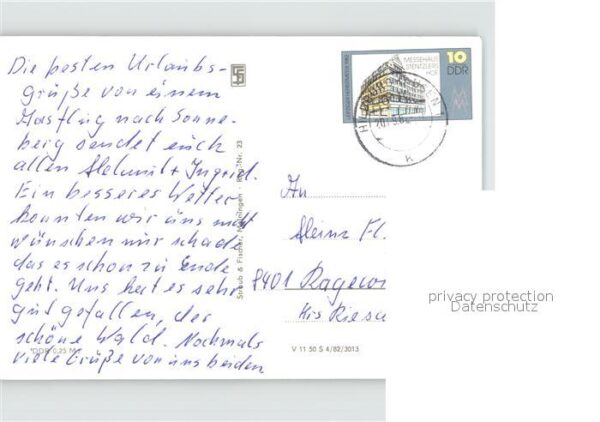 Die besten Urlaubs-
grüße von einem
Ausflug nach Sonne-
berg sendet euch
allen Helmut + Ingrid.
Ein besseres Wetter
konnten wir uns nicht
wünschen nur schade
das es schon zu Ende
geht. Uns hat es sehr
gut gefallen, der
schöne Wald. Nochmals
viele Grüße von uns beiden
DDR 0,25 M
Straub & Fischer, Meiningen
Nr. 23
LEIPZIGER HERBSTMESSE 1982
MESSEHAUS
STENTZLERS
HOF
10
DDR
MM
HILDBURGHAUSEN
An
Heinz Fl.
8401 Ragew
Krs Riesa
V 11 50 S 4/82/3013
privacy protection
Datenschutz